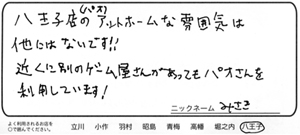 (パオ)
八王子店のアットホームな雰囲気は
他にはないです!!
近くに別のゲーム屋さんがあってもパオさんを
利用しています!
ニックネーム みさき
よく利用されるお店を
○で囲んでください。 立川 小作 羽村 昭島 青梅 高幡 堀之内 八王子